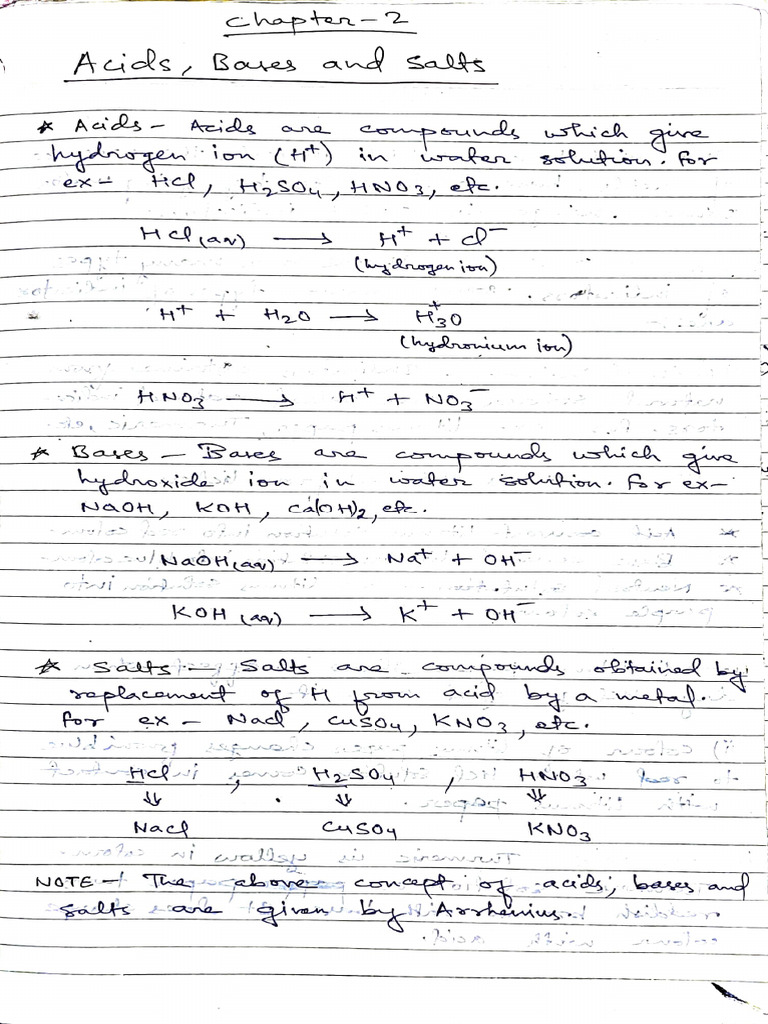 Chapter-2
Acids, Bases and Salts
* Acids - Acids are compounds which give
hydrogen ion (H⁺) in water solution. For
ex- HCl, H₂SO₄, HNO₃, etc.
HCl(aq) → H⁺ + Cl⁻
(hydrogen ion)
H⁺ + H₂O → H₃⁺O
(hydronium ion)
HNO₃ → H⁺ + NO₃⁻
* Bases - Bases are compounds which give
hydroxide ion in water solution. For ex-
NaOH, KOH, Ca(OH)₂, etc.
NaOH(aq) → Na⁺ + OH⁻
KOH (aq) → K⁺ + OH⁻
* Salts - Salts are compounds obtained by
replacement of H from acid by a metal.
For ex - NaCl, CuSO₄, KNO₃, etc.
HCl, H₂SO₄, HNO₃
⇓ ⇓ ⇓
NaCl CuSO₄ KNO₃
NOTE - The above concept of acids, bases and
salts are given by Arrhenius.